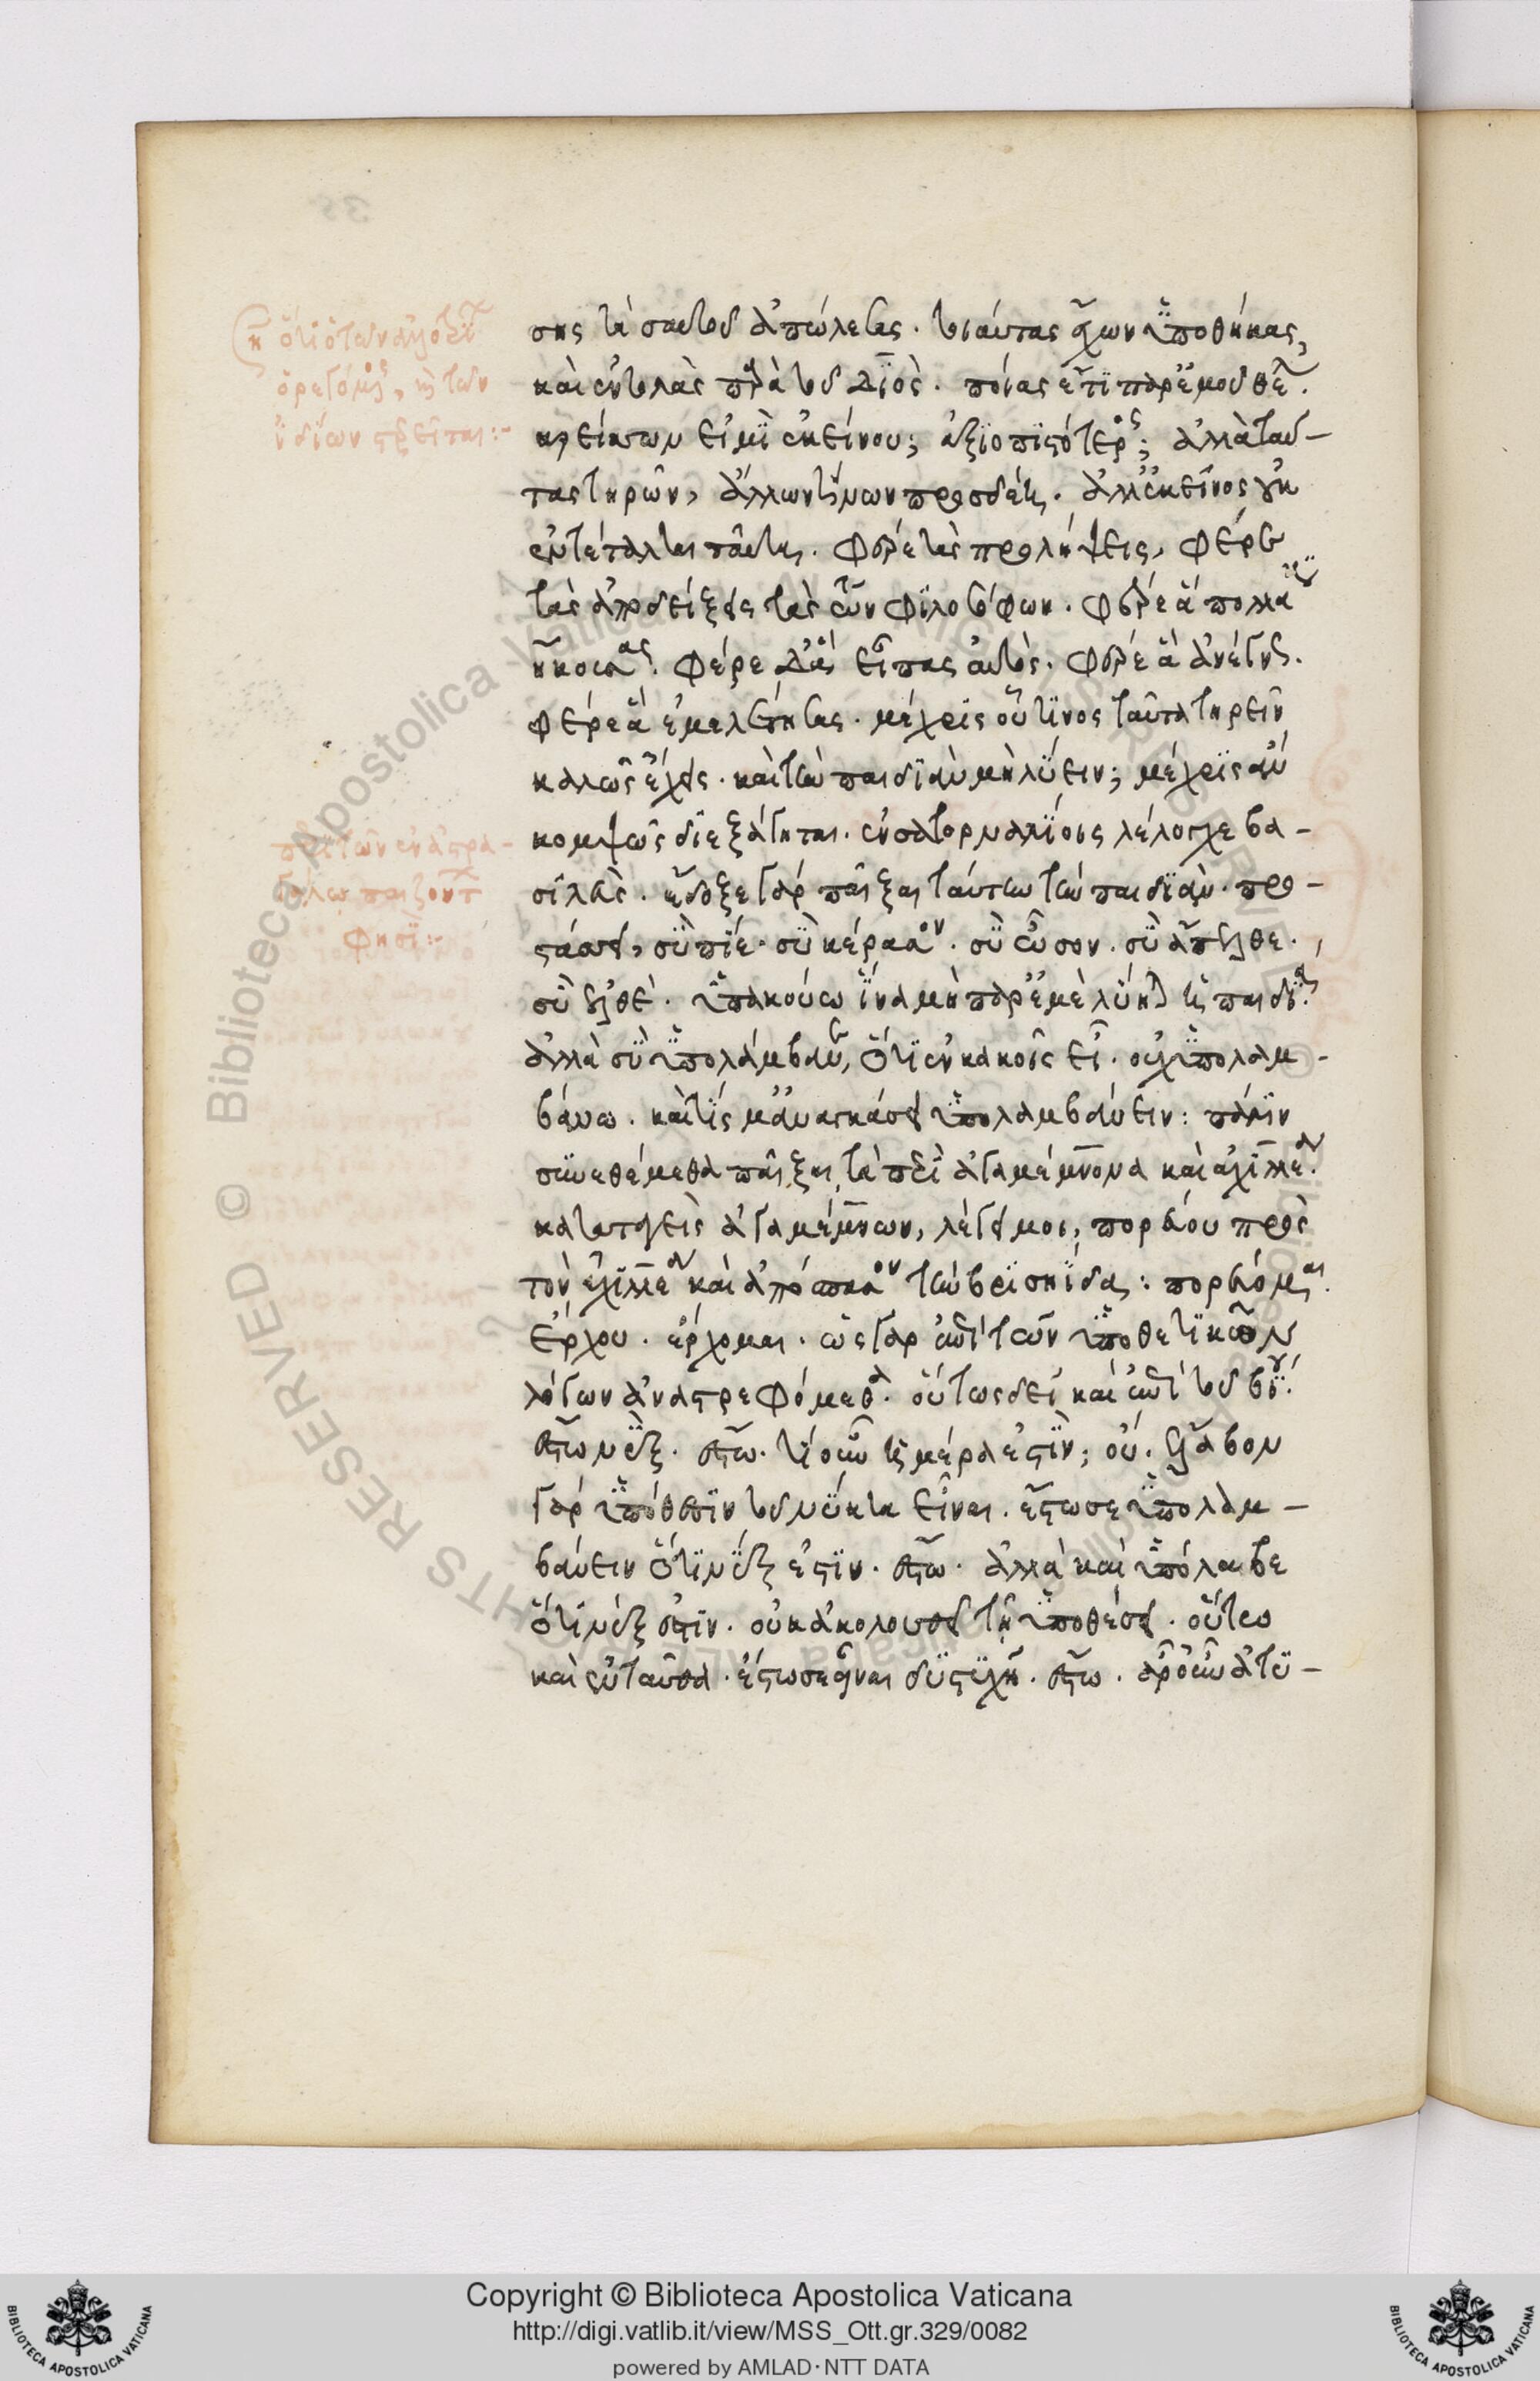 ὅτι ὁ τῶν ἀλλοτρίων
ὀρεγόμενος, καὶ τῶν
ἰδίων στερεῖται:-
σῃς τὰ σαυτοῦ ἀπώλεσας. τοιαύτας ἔχων ὑποθήκας,
καὶ ἐντολὰς παρὰ τοῦ Διὸς. ποίας ἔτι παρ' ἐμοῦ θέλεις.
κρείσσων εἰμὶ ἐκείνου; ἀξιοπιστότερος; ἀλλὰ ταύ-
τας τηρῶν, ἄλλων τινῶν προσδέῃ. ἀλλ' ἐκεῖνος οὐκ
ἐντέταλται ταῦτα. φέρε τὰς προλήψεις, φέρε
τὰς ἀποδείξεις τὰς τῶν φιλοσόφων. φέρε ἃ πολλάκις
ἤκουσας. φέρε δ' ἃ εἶπας αὐτὸς. φέρε ἃ ἀνέγνως.
φέρε ἃ ἐμελέτησας. μέχρις οὖν τίνος ταῦτα τηρεῖν
καλῶς ἔχει. καὶ τὴν παιδιὰν μὴ λύειν; μέχρις ἂν
κομψῶς διεξάγηται. ἐν σατορναλίοις λέλογχε βα-
σιλεὺς. ἔδοξε γὰρ παῖξαι ταύτην τὴν παιδιὰν. προ-
περὶ τῶν ἐν ἀστρα-
γάλῳ παιζόντων
φησί:-
στάσσει, σὺ πίε. σὺ κέρασον. σὺ ᾆσον. σὺ ἄπελθε.
σὺ ἐλθέ. ὑπακούω ἵνα μὴ παρ' ἐμὲ λύηται ἡ παιδιά.
ἀλλὰ σὺ ὑπολάμβανε, ὅτι ἐν κακοῖς εἶ. οὐχ ὑπολαμ-
βάνω. καὶ τίς μ' ἀναγκάσει ὑπολαμβάνειν: πάλιν
συνεθέμεθα παῖξαι τὰ περὶ ἀγαμέμνονα καὶ ἀχιλλέα.
καταταγεὶς ἀγαμέμνων, λέγει μοι, πορεύου πρὸς
τὸν ἀχιλλέα καὶ ἀπόσπασον τὴν βρισηίδα: πορεύομαι.
ἔρχου. ἔρχομαι. ὡς γὰρ ἐπὶ τῶν ὑποθετικῶν
λόγων ἀναστρεφόμεθα. οὕτως δεῖ καὶ ἐπὶ τοῦ βίου.
ἔστω νὺξ. ἔστω. τί οὖν ἡμέρα ἐστὶν; οὔ. ἔλαβον
γὰρ ὑπόθεσιν τοῦ νύκτα εἶναι. ἔστω σε ὑπολαμ-
βάνειν ὅτι νύξ ἐστιν. ἔστω. ἀλλὰ καὶ ὑπόλαβε
ὅτι νύξ ἐστιν. οὐκ ἀκολουθεῖ τῇ ὑποθέσει. οὕτω
καὶ ἐνταῦθα. ἔστω σε εἶναι δυστυχῆ. ἔστω. ἆρ' οὖν ἀτυ-
Copyright © Biblioteca Apostolica Vaticana
http://digi.vatlib.it/view/MSS_Ott.gr.329/0082
powered by AMLAD·NTT DATA